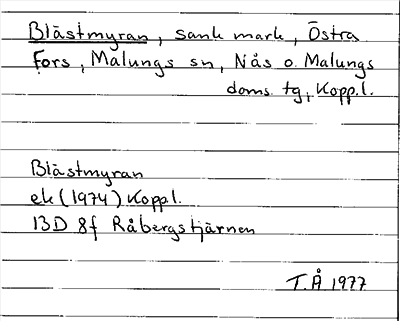 Blästmyran, sank mark, Östra
Fors, Malungs sn, Nås o. Malungs
doms. tg, Koppl.
Blästmyran
ek (1974) Koppl.
13D 8f Råbergstjärnen
T.Å 1977